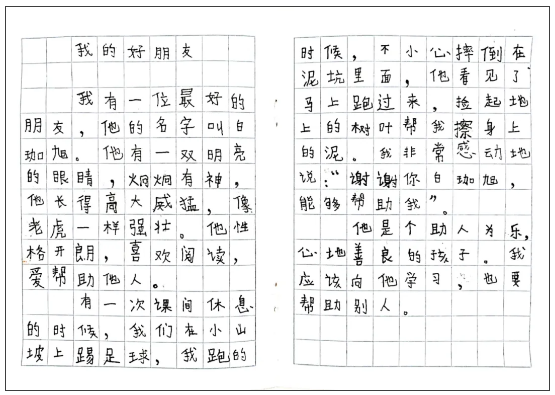 我的好朋友
我有一位最好的
朋友，他的名字叫白
珈旭。他有一双明亮
的眼睛，炯炯有神，
他长得高大威猛，像
老虎一样强壮。他性
格开朗，喜欢阅读，
爱帮助他人。
有一次课间休息
的时候，我们在小山
坡上踢足球，我跑的
时候，不小心摔倒在
泥坑里面，他看见了
马上跑过来，捡起地
上的树叶帮我擦身上
的泥。我非常感动地
说：“谢谢你白珈旭，
能够帮助我”。
他是个助人为乐，
心地善良的孩子。我
应该向他学习，也要
帮助别人。